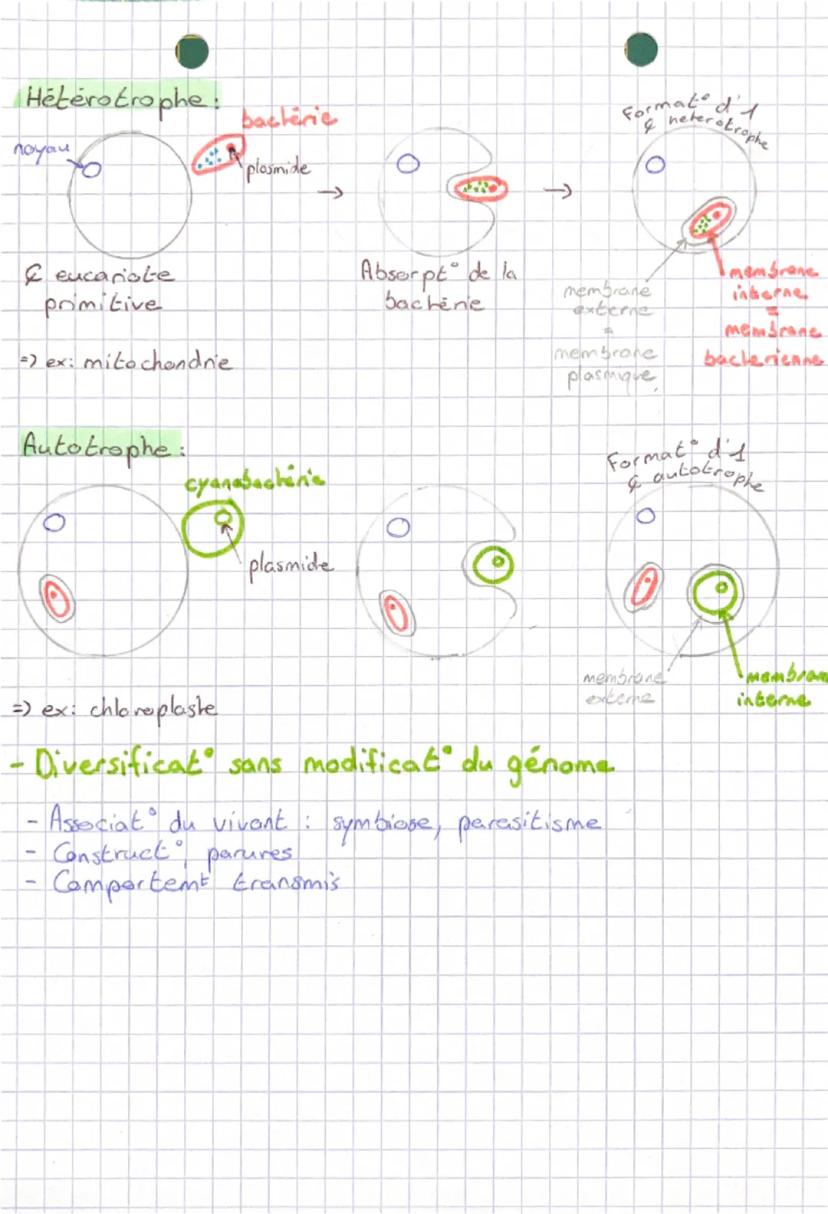 Hétérotrophe :
bactérie
noyau
plasmide
Format° d'1
¢ heterotrophe
¢ eucariote
primitive
Absorpt° de la
bactérie
membrane
externe
=
membrane
plasmique
membrane
interne
=
membrane
bacterienne
=> ex: mitochondrie
Autotrophe :
cyanobactérie
plasmide
Format° d'1
¢ autotrophe
membrane
externe
membran
interne
=> ex: chloroplaste
- Diversificat° sans modificat° du génome
- Associat° du vivant : symbiose, parasitisme
- Construct°, parures
- Comportemt transmis